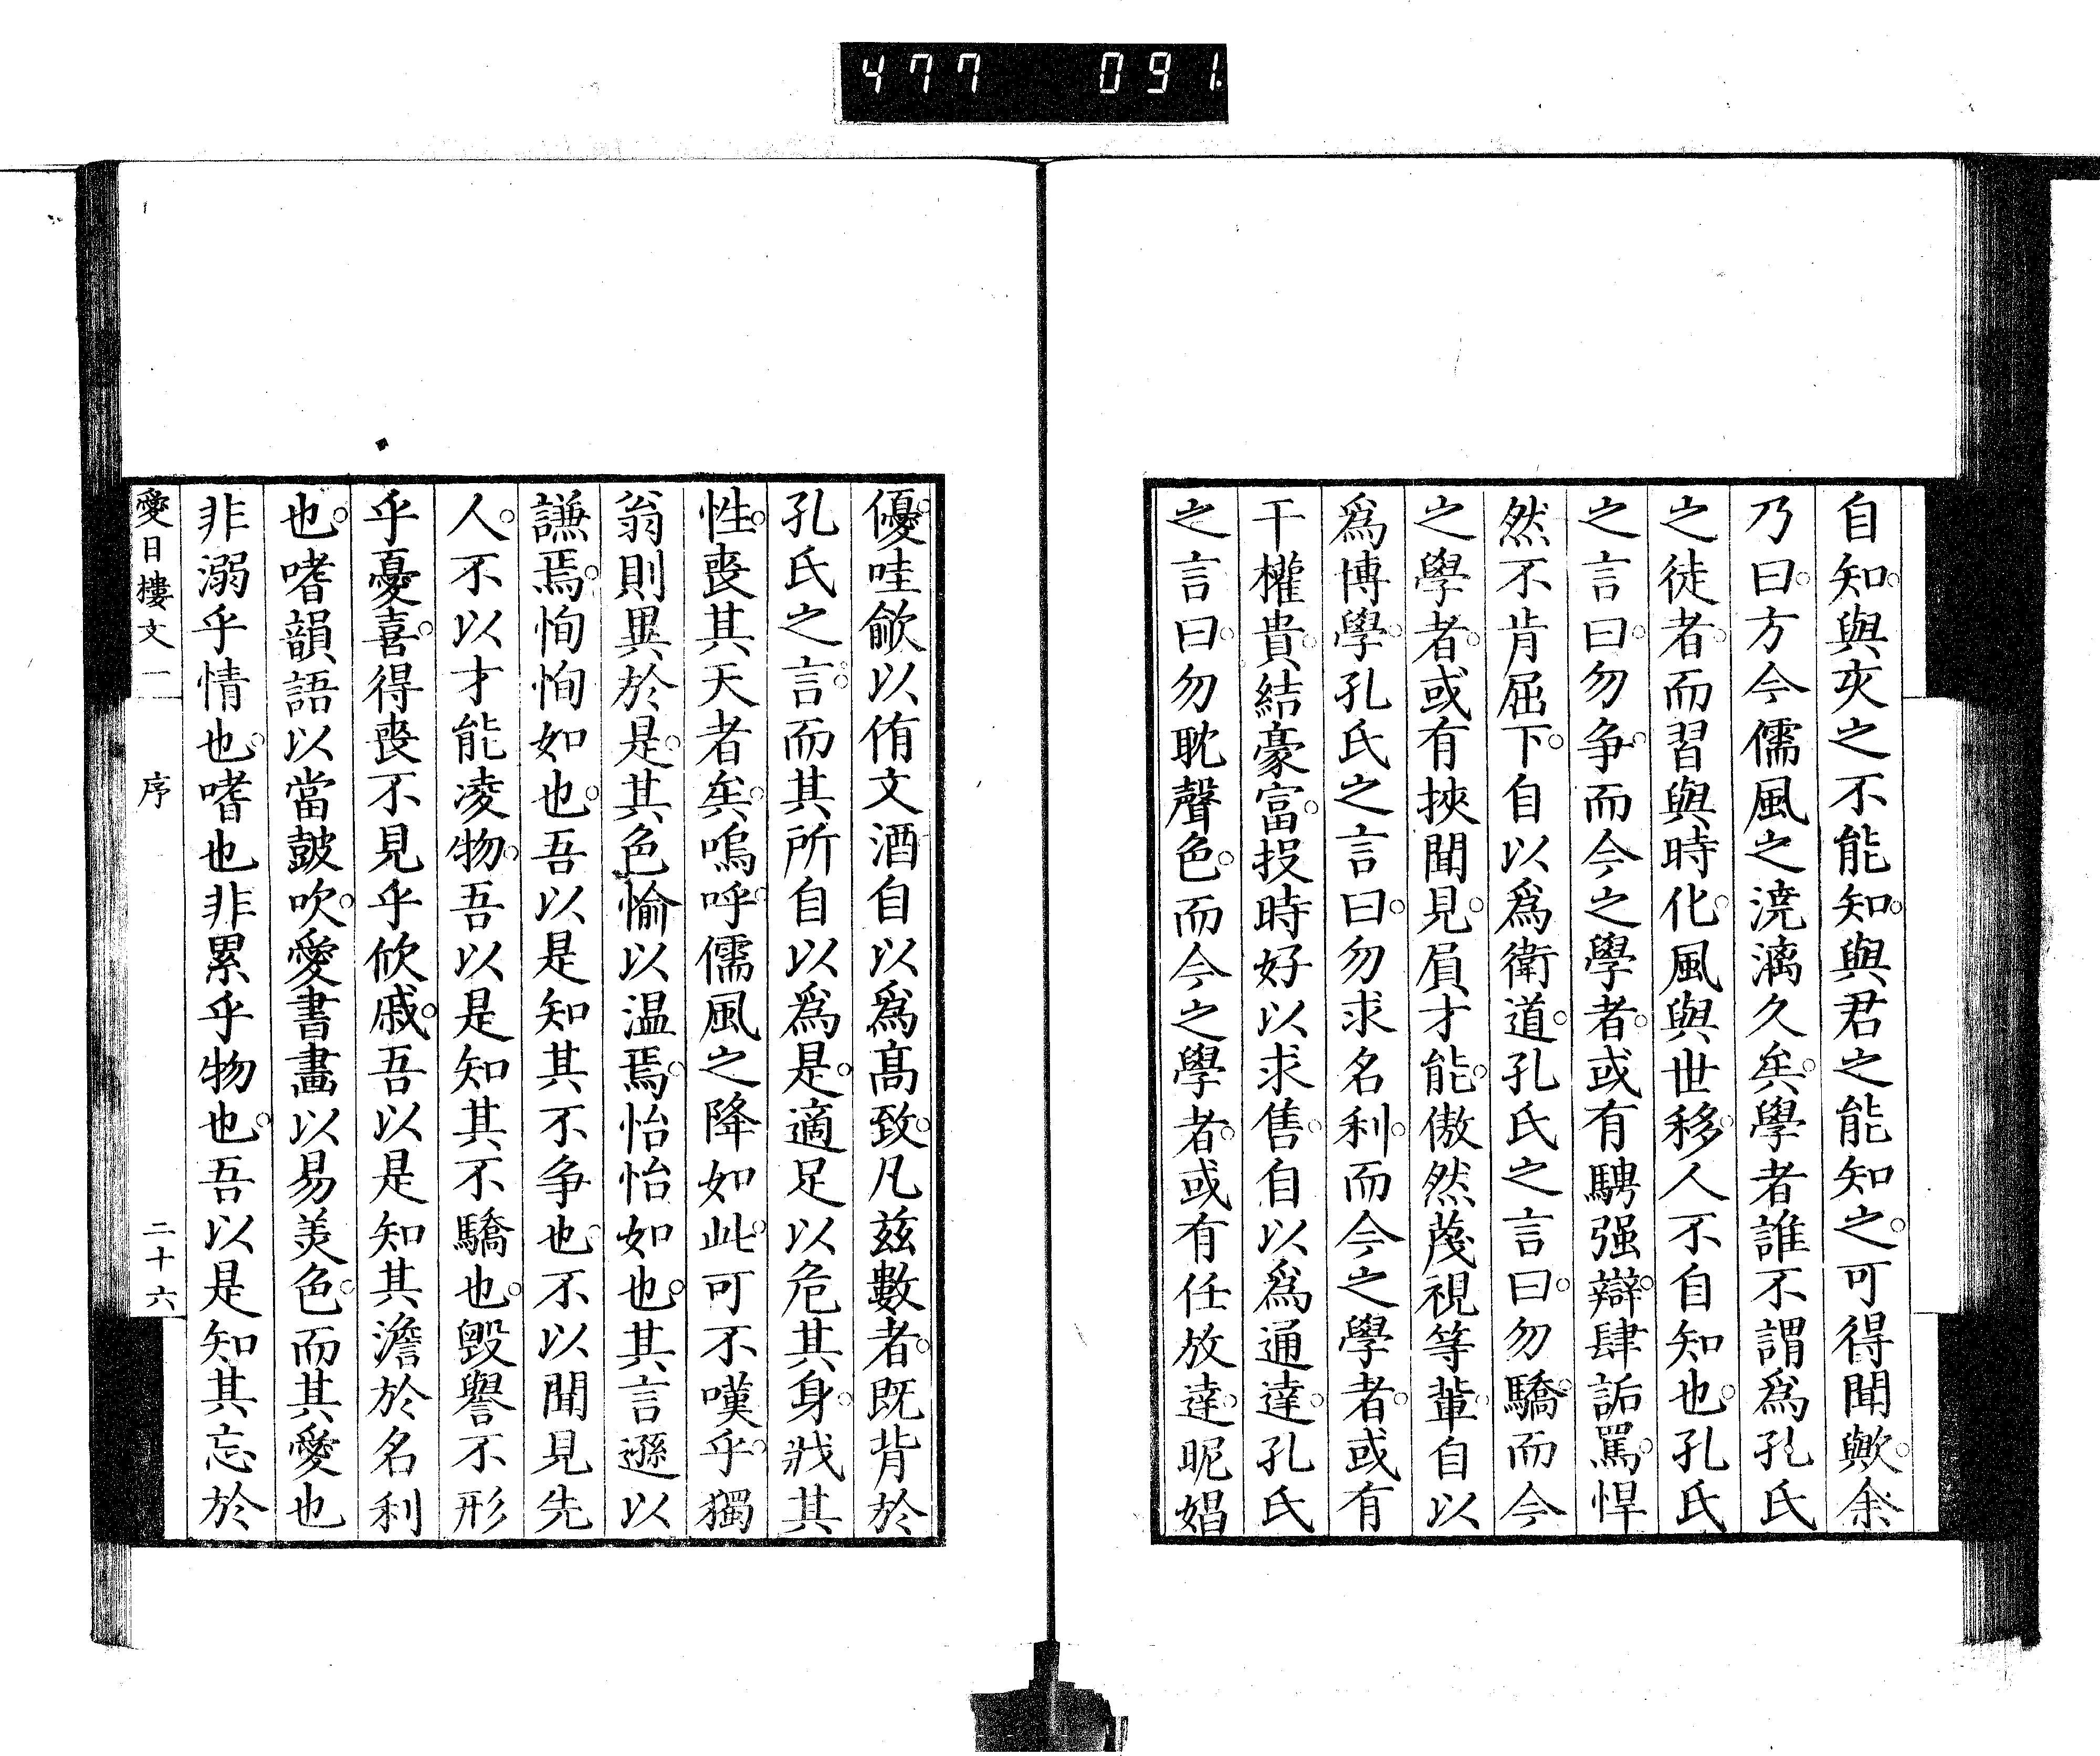 477 091.
自知。與夾之不能知。與君之能知之。可得聞歟。余
乃曰。方今儒風之澆漓久矣。學者誰不謂爲孔氏
之徒者。而習與時化。風與世移。人不自知也。孔氏
之言曰。勿争。而今之學者。或有騁强辯。肆詬罵。悍
然不肯屈下。自以爲衛道。孔氏之言曰。勿驕。而今
之學者。或有挾聞見。眉才能。傲然蔑視等輩。自以
爲博學。孔氏之言曰。勿求名利。而今之學者。或有
干權貴。結豪富。投時好以求售。自以爲通達。孔氏
之言曰。勿耽聲色。而今之學者。或有任放達。昵娼
優。哇歈以侑文酒自以爲髙致。凡茲數者。既背於
孔氏之言。而其所自以爲是。適足以危其身。戕其
性。喪其天者矣。嗚呼。儒風之降如此。可不嘆乎。獨
翁則異於是。其色愉以温焉。怡怡如也。其言遜以
謙焉。恂恂如也。吾以是知其不争也。不以聞見先
人。不以才能凌物。吾以是知其不驕也。毀譽不形
乎憂喜。得喪不見乎欣戚。吾以是知其澹於名利
也。嗜韻語以當皷吹。愛書畫以易羙色。而其愛也
非溺乎情也。嗜也非累乎物也。吾以是知其忘於
愛日樓文 二 序 二十六